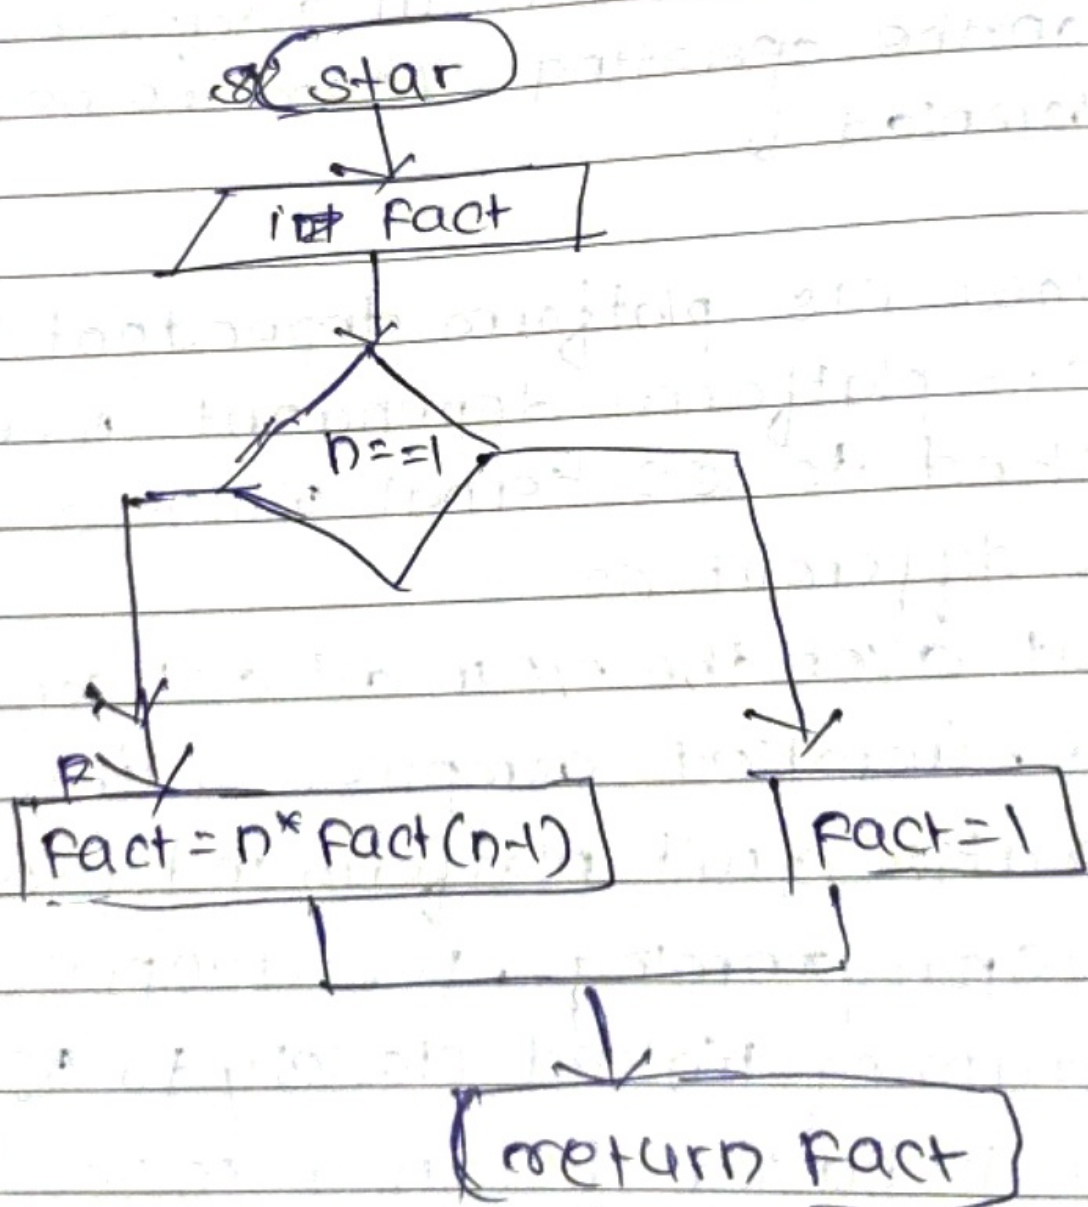 star
int fact
n==1
F
fact=n* fact(n-1)
fact=1
return fact